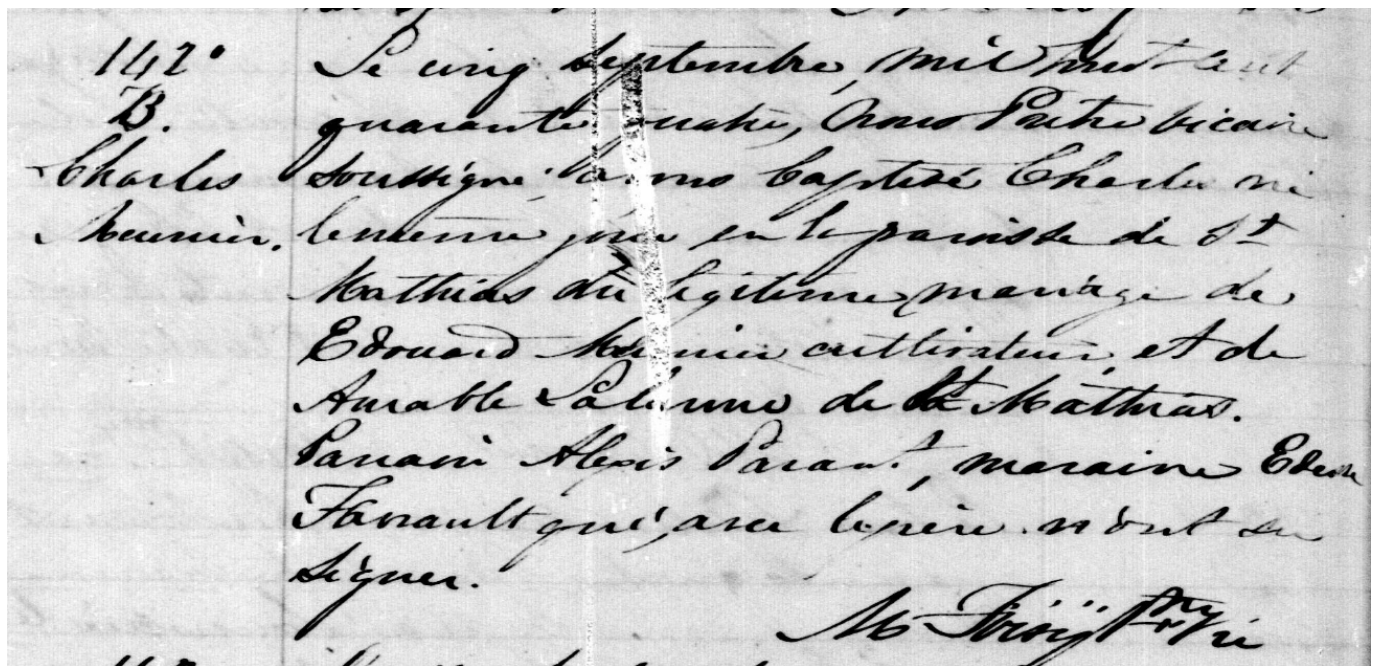 142°
B.
Charles
Meunier.
Le cinq Septembre, mil huit cent
quarante quatre, Nous Prêtre vicaire
soussigné avons baptisé Charles né
le même jour en la paroisse de St
Mathias du légitime mariage de
Edouard Meunier cultivateur, et de
Aurable de St Mathias.
Parrain Alexis Parant, maraine
qui, avec le père n'ont su
signer.